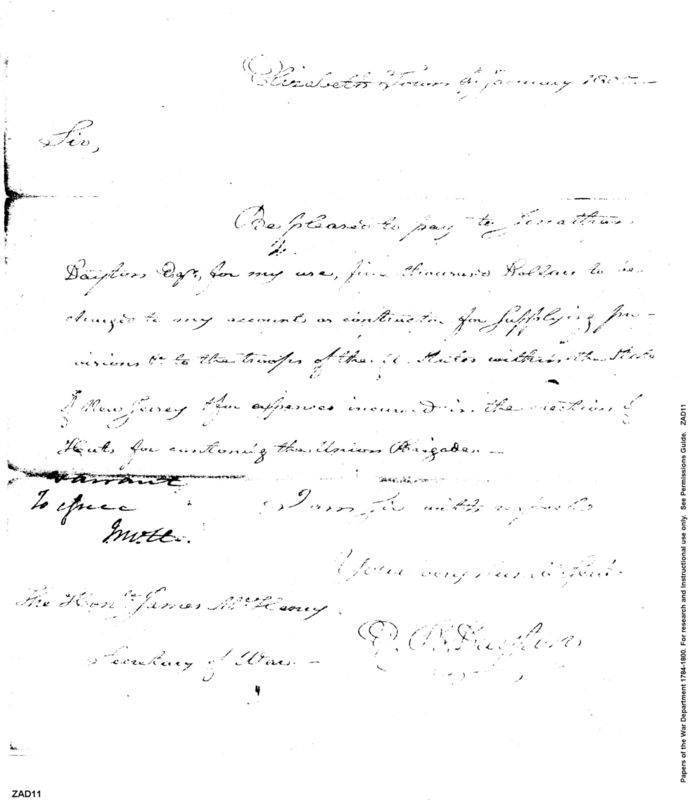 Elizabeth Town 9th January 1800.—
Sir,
Be pleased to pay to Jonathan
Dayton Esqr, for my use, five thousand Dollars to be
charged to my accounts as contractor for supplying pro-
visions &c to the troops of the U. States within the State
of New Jersey & for expenses incurred in the erection of
Huts for cantoning the Union Brigade—
warrant
To issue
JMcH.
I am Sir with respect
Your very humble Servt.
The Honble. James McHenry
Secretary of War—
Dayton
Papers of the War Department 1784-1800. For research and Instructional use only. See Permissions Guide. ZAD11
ZAD11